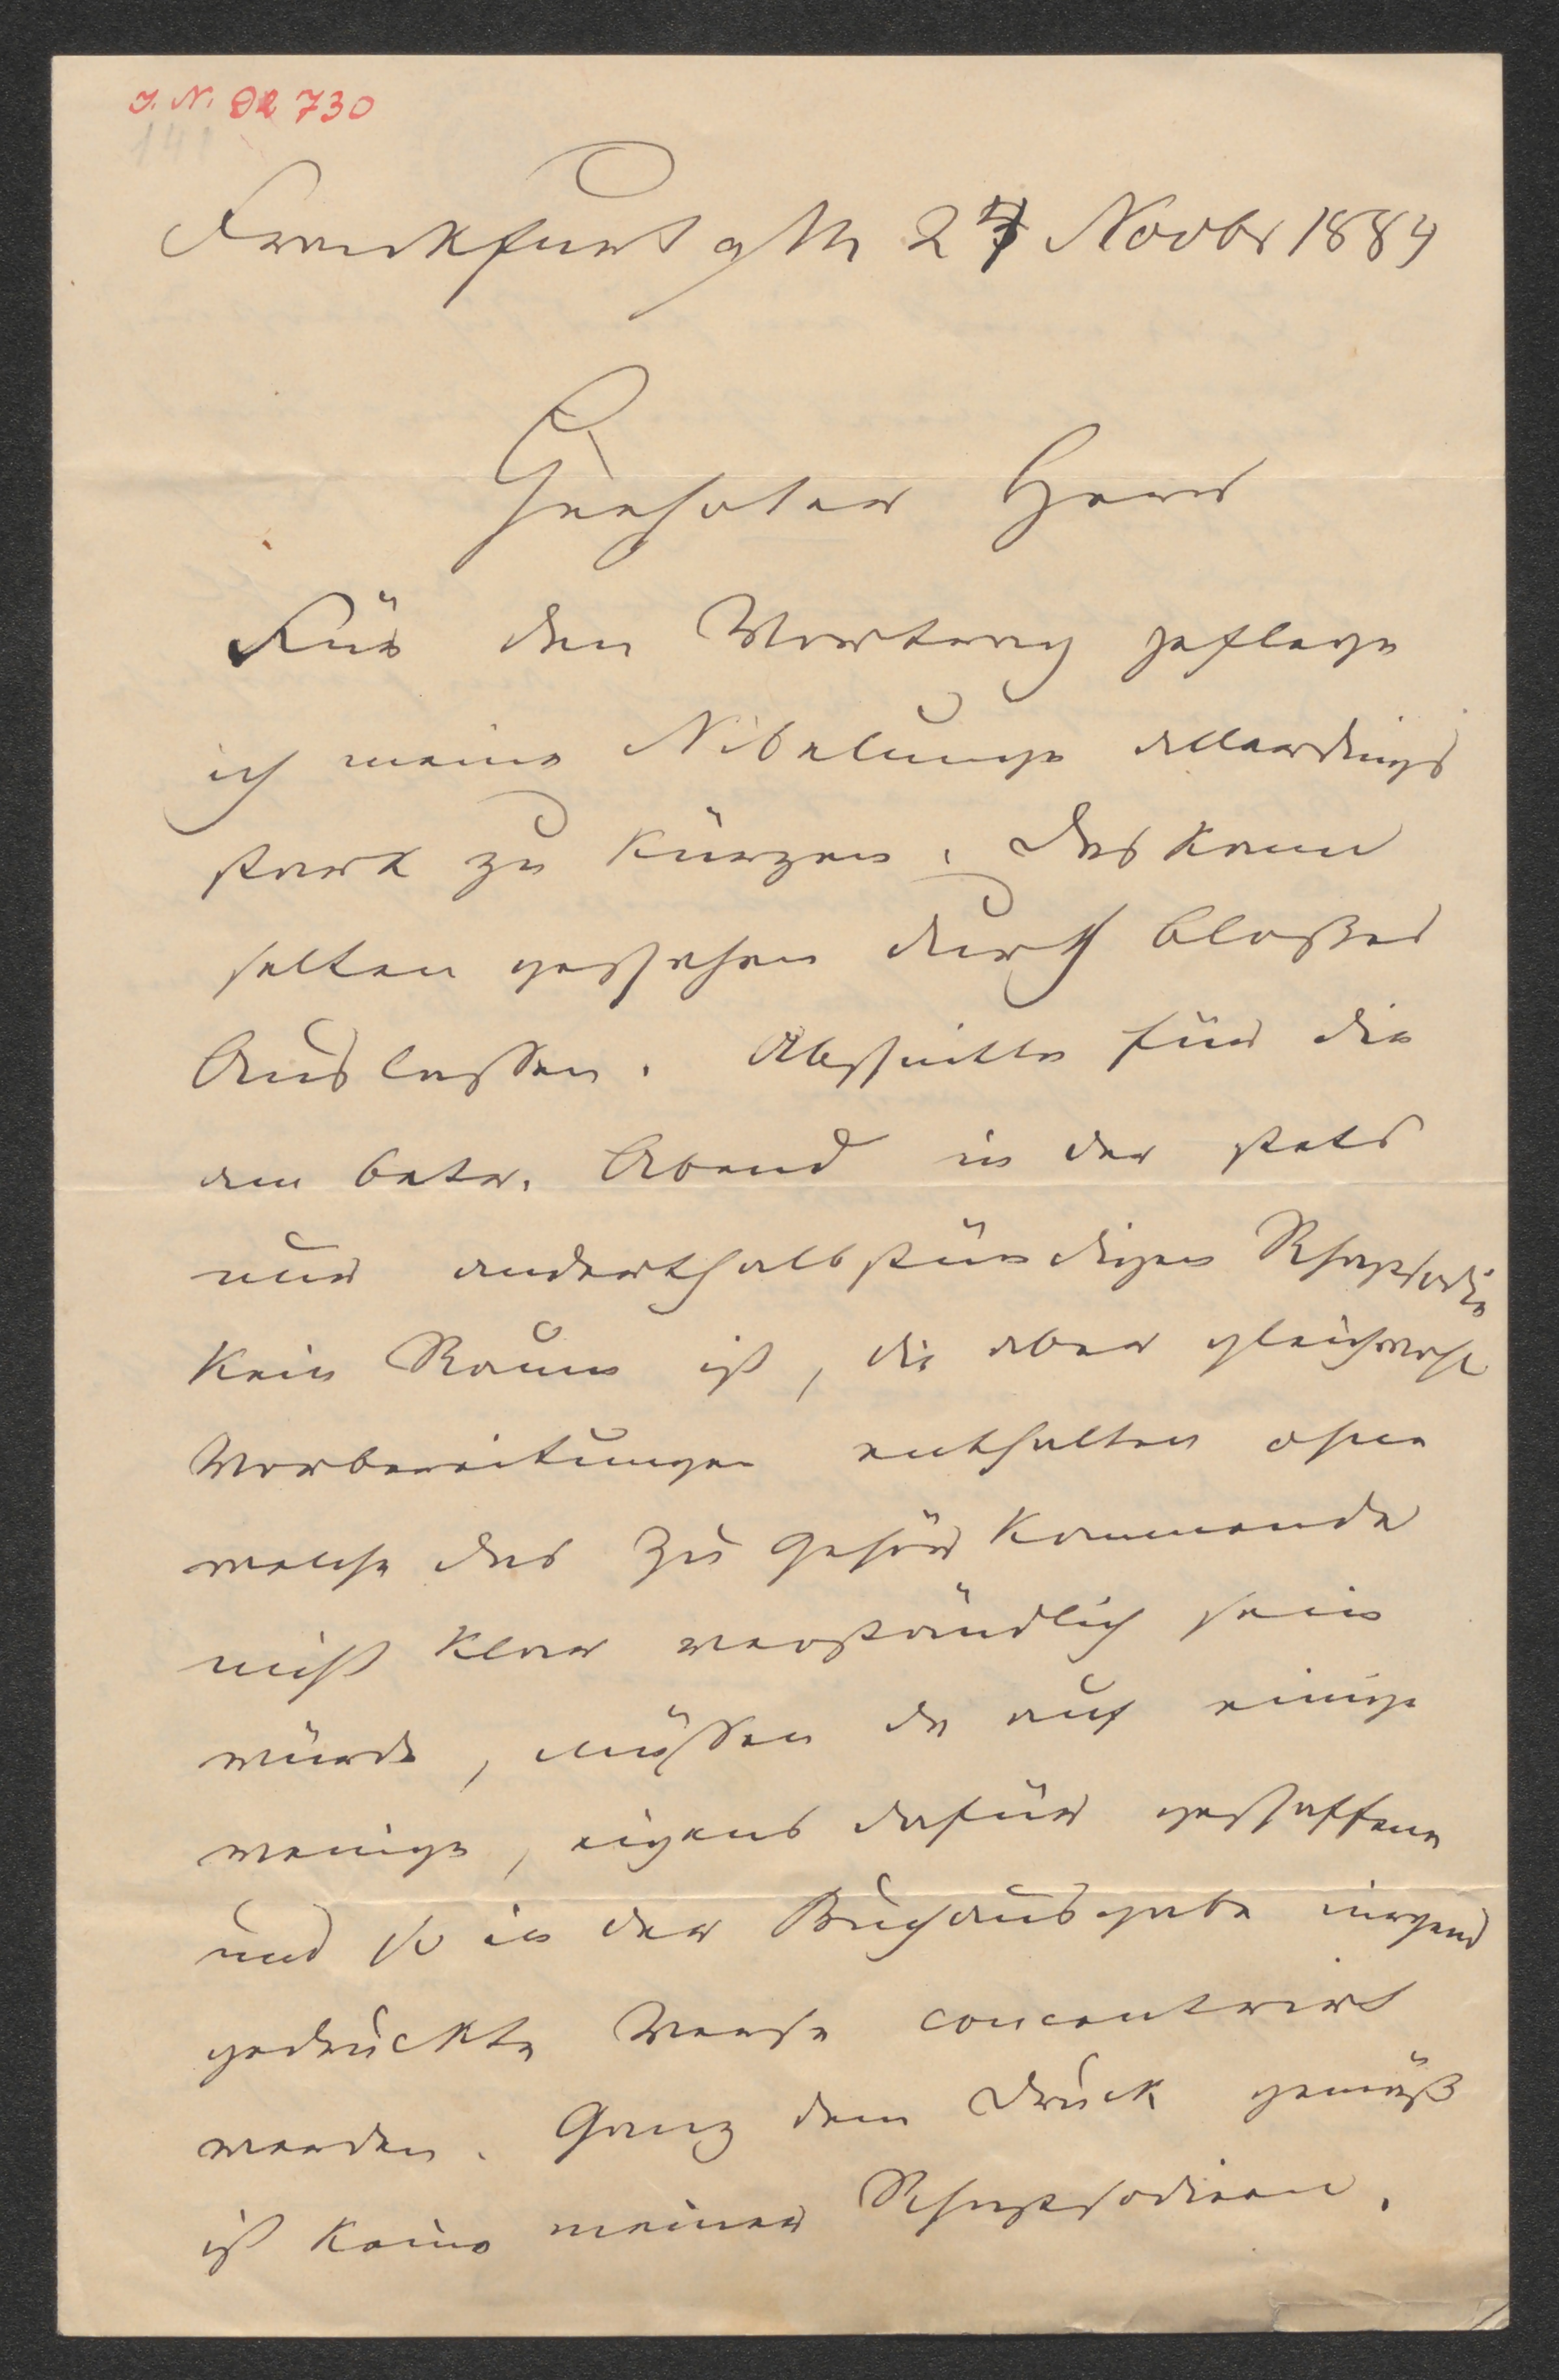 J. N. DR 730
141
Frankfurt a/M 27 Novbr 1884
Geehrter Herr
Für den Vortrag pflege
ich meine Nibelunge allerdings
stark zu kürzen. Das kann
selten geschehen durch bloßes
Auslassen. Abschnitte für die
am betr. Abend in der stets
nur anderthalbstündigen Rhapsodie
kein Raum ist, die aber gleichwohl
Vorbereitungen enthalten ohne
welche das zu Gehör kommende
nicht klar verständlich sein
würde, müssen da auf einige
wenige, eigens dafür geschaffene
und so in der Buchausgabe nirgend
gedruckte Verse concentrirt
werden. Ganz dem Druck gemäß
ist keine meiner Rhapsodieen.